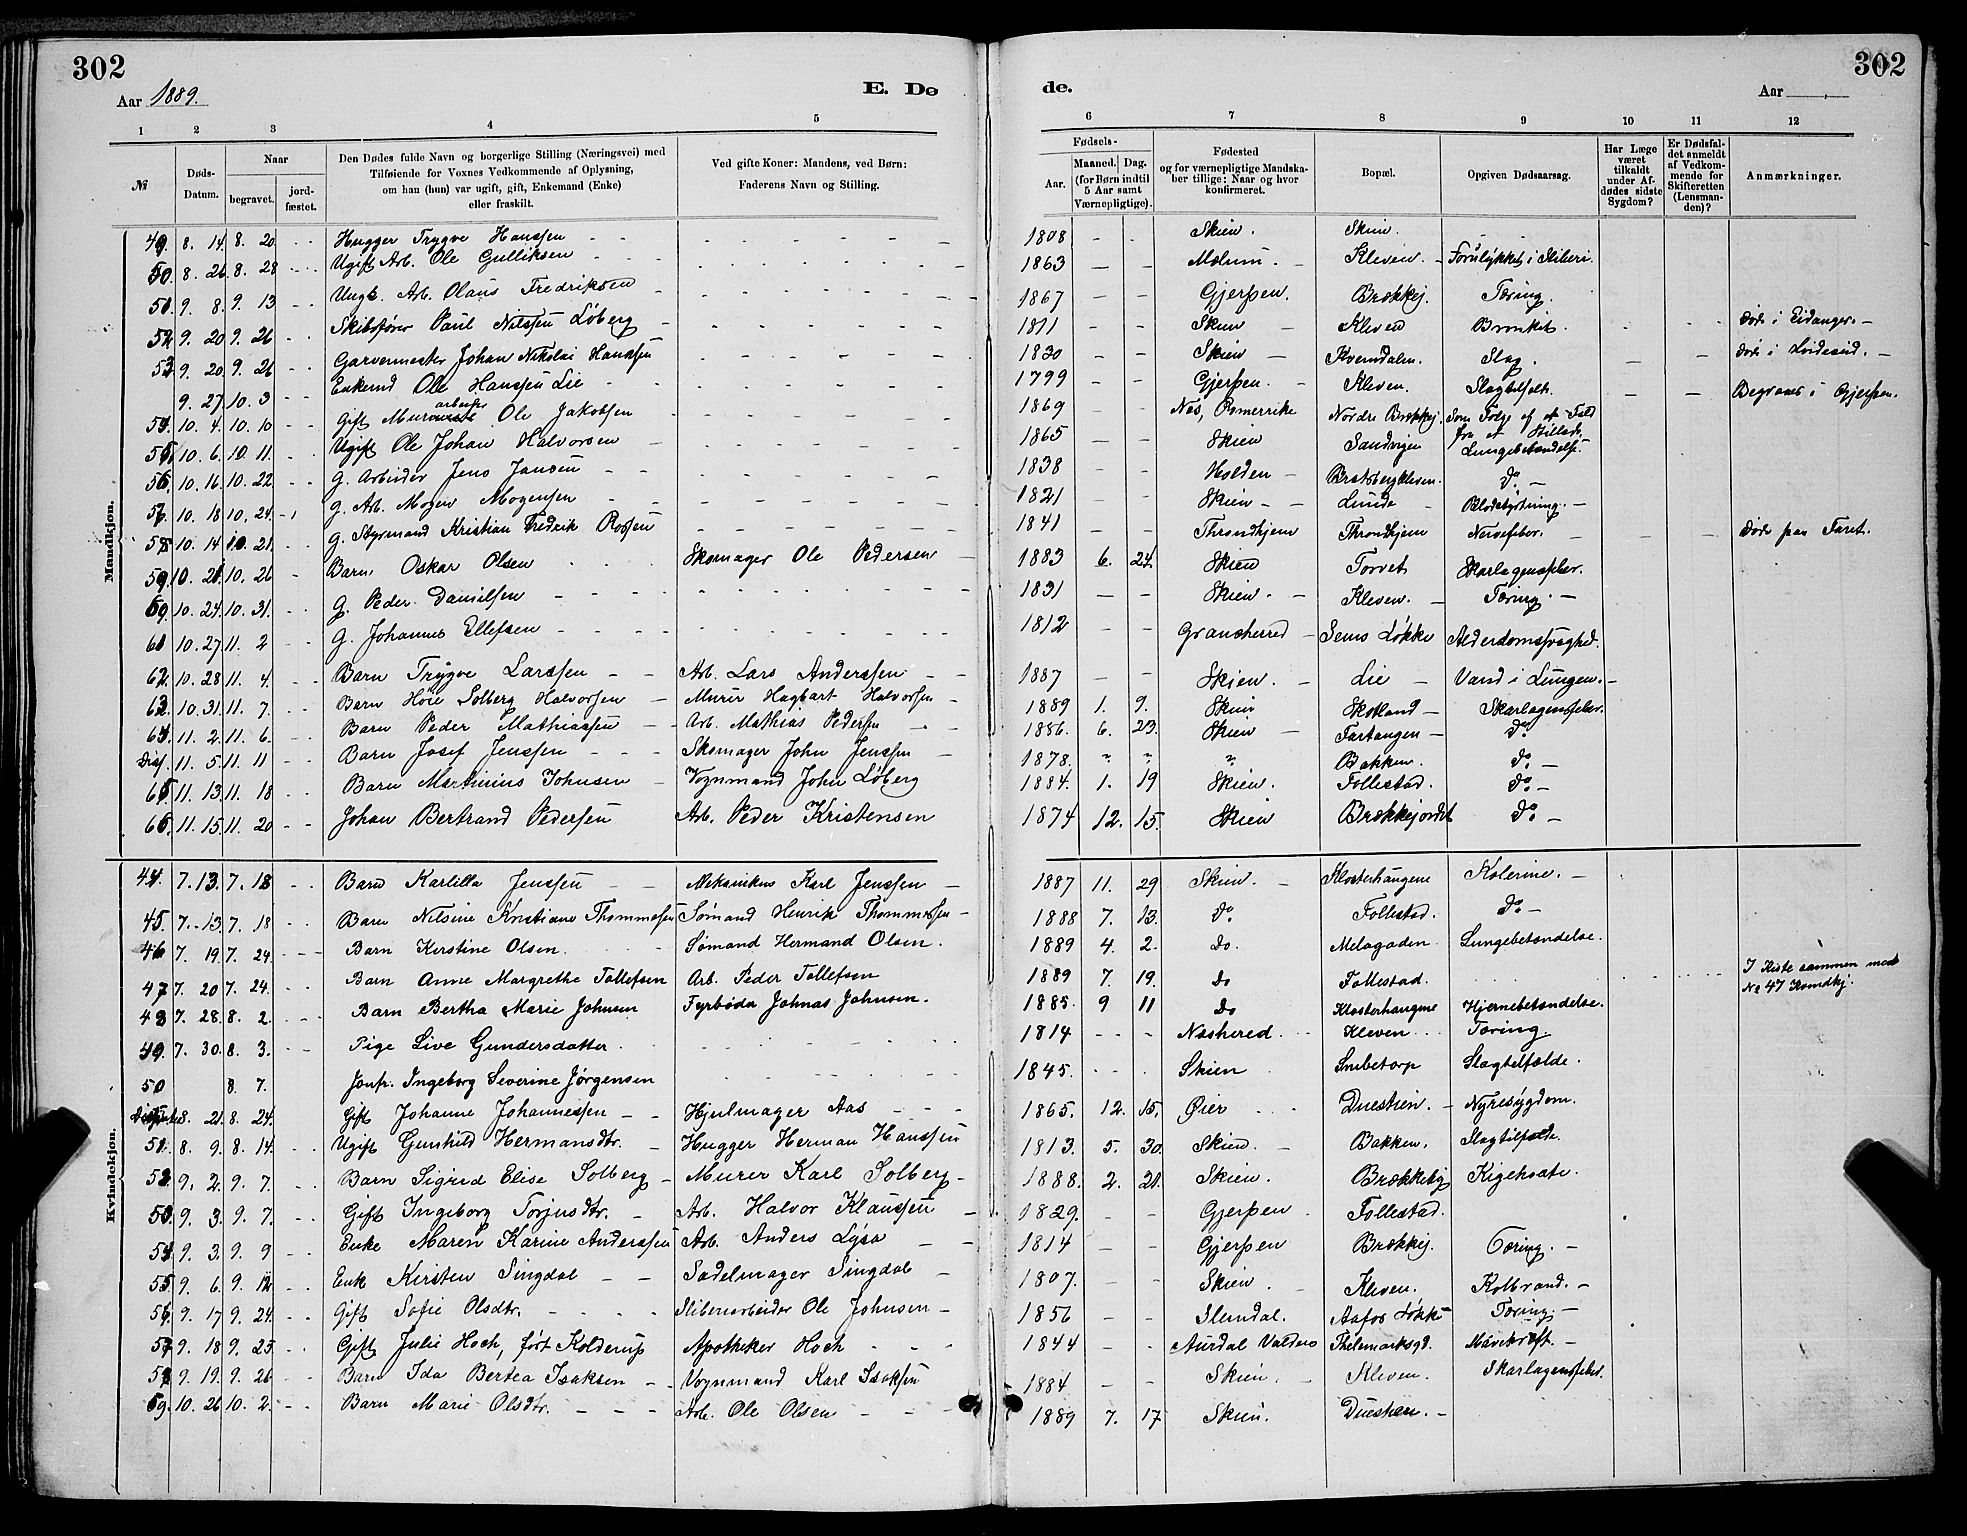 302
302
Aar 1889.
E. Dø
de.
Aar
1 2 3 4 5 6 7 8 9 10 11 12
№
Døds-Datum.
Naar
begravet.
jordfæstet.
Den Dødes fulde Navn og borgerlige Stilling (Næringsvei) med Tilføiende for Voxnes Vedkommende af Oplysning, om han (hun) var ugift, gift, Enkemand (Enke) eller fraskilt.
Ved gifte Koner: Mandens, ved Børn: Faderens Navn og Stilling.
Fødsels-
Aar.
Maaned. Dag. (for Børn indtil 5 Aar samt Værnepligtige).
Fødested og for værnepligtige Mandskaber tillige: Naar og hvor konfirmeret.
Bopæl.
Opgiven Dødsaarsag.
Har Læge været tilkaldt under Afdødes sidste Sygdom?
Er Dødsfaldet anmeldt af Vedkommende for Skifteretten (Lensmanden)?
Anmærkninger.
Mandkjøn.
49. 8. 14. 8. 20 Hugger Trygve Hanssen 1808 Skien. Skien.
50. 8. 26. 8. 28 Ugift Arb. Ole Gulliksen 1863 Mælum Kleven. Forulykket i Sliberi.
51. 9. 8. 9. 13 Ungk. Arb. Olaus Fredriksen 1867 Gjerpen. Brækkej. Tæring.
52. 9. 20 9. 26 Skibsfører Paul Nilssen Løberg 1811 Skien Kleven Bronkit. Død i Eidanger.
53. 9. 20 9. 26 Garvermester Johan Nikolai Hanssen 1830 Skien Kverndalen. Slag. Død i Hvideseid.
9. 27 10. 3 Enkemd Ole Hanssen Lie 1799 Gjerpen. Kleven. Slagtilfelde. Begraves i Gjerpen.
54. 10. 4. 10. 10 Gift Murarbeider Ole Jakobsen 1869 Nes, Romerrike Nordre Brækkej. Som Følge af et Fald fra et Stillads.
55. 10. 6. 10. 11. Ugift Ole Johan Halvorsen 1865 Skien Sandvigen Lungebetændelse.
56. 10. 16. 10. 22 g. Arbeider Jens Jansen 1838 Holden Bratsbergkleven. Do
57. 10. 18 10. 24 g. Arb. Mogen Mogensen 1821 Skien Lunde Blodstyrtning.
58. 10. 14 10. 21. g. Styrmand Kristian Fredrik Rossen 1841 Throndhjem Throndhjem Nervefeber. Død paa Faret.
59. 10. 21. 10. 26 Barn. Oskar Olsen Skomager Ole Pedersen 1883 6. 24. Skien Torvet Skarlagensfeber.
60. 10. 24. 10. 31. G. Peder Danielsen 1831 Skien. Kleven. Tæring.
61 10. 27 11. 2 G. Johannes Ellefsen 1812 Gransherred Sems Løkke Alderdomssvaghed.
62. 10. 28 11. 4. Barn Trygve Larssen Arb. Lars Anderssen 1887 Skien. Lie Vand i Lungen.
63. 10. 31. 11. 7. Barn Solberg Halvorsen Murer Hagbart Halvorsen 1889 1. 9. Skien Skotland Skarlagensfeber.
64. 11. 2. 11. 6. Barn Peder Mathiassen Arb. Mathias Pedersen 1886. 6. 23. Skien Fartangen Do
Diss. 11. 5. 11. 11 Barn Josef Jenssen Skomager John Jenssen 1878. " " " Bakken. Do
65. 11. 13. 11. 18 Barn Martinius Johnsen Vognmand John Løberg 1884. 1. 19 Skien. Follestad. Do
66. 11. 15. 11. 20 Johan Bertrand Pedersen Arb. Peder Kristensen 1874 12. 15. Skien Brækkejordet Do
Kvindekjøn.
44. 7. 13. 7. 18 Barn Karlilla Jenssen Mekanikus Karl Jenssen 1887 11. 29 Skien. Klosterhaugene Kolerine.
45. 7. 13. 7. 18. Barn Nilsine Kristiane Thommesen Sømand Henrik Thommesen 1888 7. 13. Do Follestad. Do
46 7. 19. 7. 24. Barn Kerstine Olsen. Sømand Hermand Olsen. 1889 4. 2. Do. Melagaden Lungebetændelse.
47 7. 20 7. 24. Barn Anne Margrethe Tollefsen Arb. Peder Tollefsen 1889 7. 19. Do Follestad. I Kiste sammen med № 47 Kvindkj.
48 7. 28. 8. 2. Barn Bertha Marie Johnsen Fyrbøder Johnas Johnsen. 1885. 9 11 Do Klosterhaugene Hjernebetændelse.
49. 7. 30. 8. 3. Pige Live Gundersdatter 1814 Nesherred. Kleven. Tæring.
50 8. 7. Jomfr. Ingeborg Severine Jørgensen 1845. Skien Snibetorp Slagtilfælde.
8. 21. 8. 24. Gift Johanne Johannessen Hjulmager Aas 1865. 12. 15. Øier Duestien. Nyresygdom.
51. 8. 9. 8. 14. Ugift Gunhild Hermansdtr. Hugger Herman Hanssen 1813. 5. 30. Skien. Bakken. Slagtilfælde.
52. 9. 2. 9. 7. Barn Sigrid Elise Solberg Murer Karl Solberg 1888. 2. 21. Skien. Brækkebg Kighoste.
53. 9. 3. 9. 7. Gift Ingeborg Torjusdtr. Arb. Halvor Klaussen 1829. Gjerpen Follestad.
54. 9. 3. 9. 9 Enke Maren Karine Anderssen Arb. Anders Lysa 1814 Gjerpen Brækkej. Tæring.
55. 9. 6. 9. 12 Enk Kirsten Singdal Sadelmager Singdal 1807. Skien Kleven. Kolbrand.
56. 9. 17 9. 24. Gift Sofie Olsdtr. Sliberiarbeider Ole Johnsen 1856 Slemdal. Aafos Løkke Tæring.
57. 9. 18 9. 25 Gift Julie Hoch, født Kolderup Apotheker Hoch 1844 Aurdal Valders Thelemarksgd. Mavekræft.
58. 9. 19. 9. 26 Barn Ida Bertea Isaksen Vognmand Karl Isaksen 1884 Skien. Kleven. Skarlagensfeber.
59. 10. 26 10. 2. Barn Marie Olsdtr. Arb. Ole Olsen 1889 7. 17. Skien. Duestien.